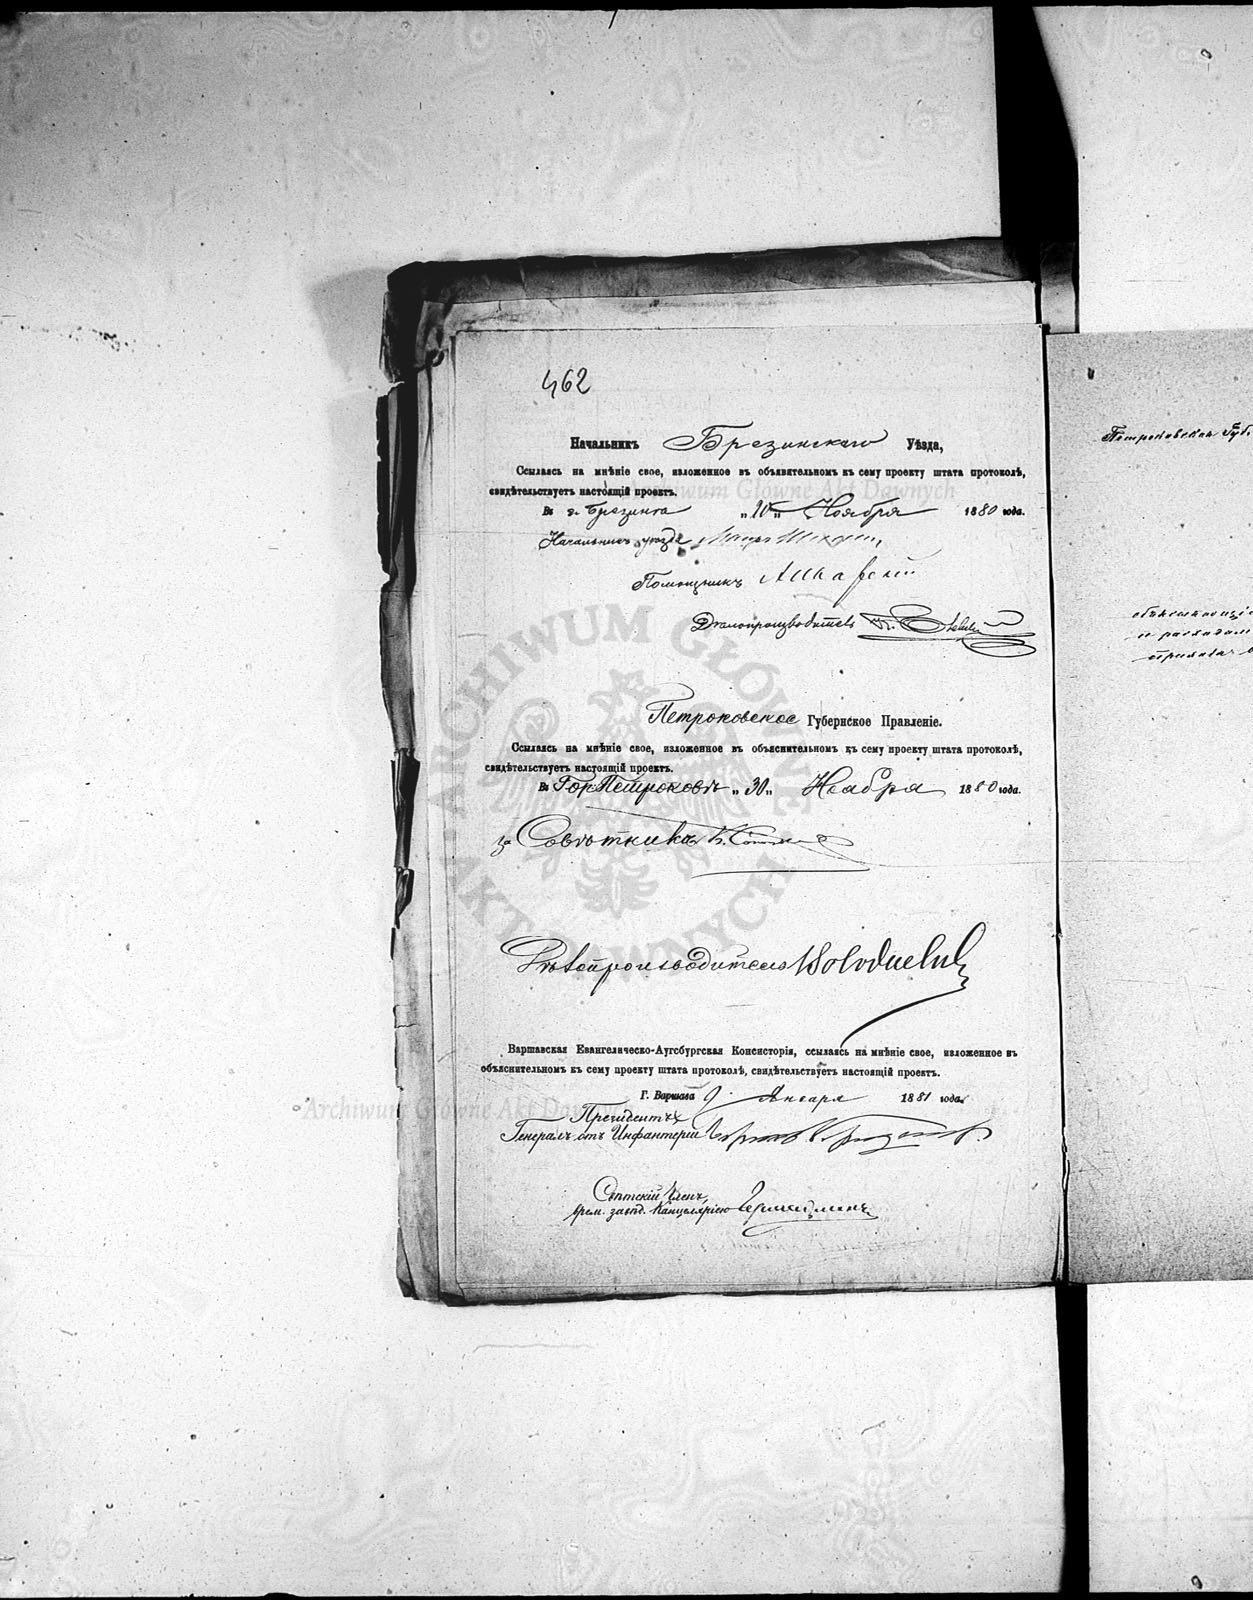 462
Начальникъ Брезинскаго Уѣзда,
Ссылаясь на мнѣніе свое, изложенное въ объявительномъ къ сему проекту штата протоколѣ,
свидѣтельствуетъ настоящій проектъ.
Archiwum Główne Akt Dawnych
Въ г. Брезинка „20„ Ноября 1880 года.
Начальникъ уѣзда
Помощникъ
Дѣлопроизводитель
ARCHIWUM GŁÓWNE AKT DAWNYCH
Петроковское Губернское Правленіе.
Ссылаясь на мнѣніе свое, изложенное въ объяснительномъ къ сему проекту штата протоколѣ,
свидѣтельствуетъ настоящій проектъ.
Въ Гор Петроковѣ „30„ Ноября 1880 года.
за Совѣтникъ
Дѣлопроизводитель
Варшавская Евангелическо-Аугсбургская Консисторія, ссылаясь на мнѣніе свое, изложенное въ
объяснительномъ къ сему проекту штата протоколѣ, свидѣтельствуетъ настоящій проектъ.
Г. Варшава 9 Января 1881 года.
Archiwum Główne Akt Dawnych
Президентъ
Генералъ отъ Инфантеріи
Свѣтскій Членъ,
врем. завѣд. Канцеляріею
Петроковская Губ.
и расходам